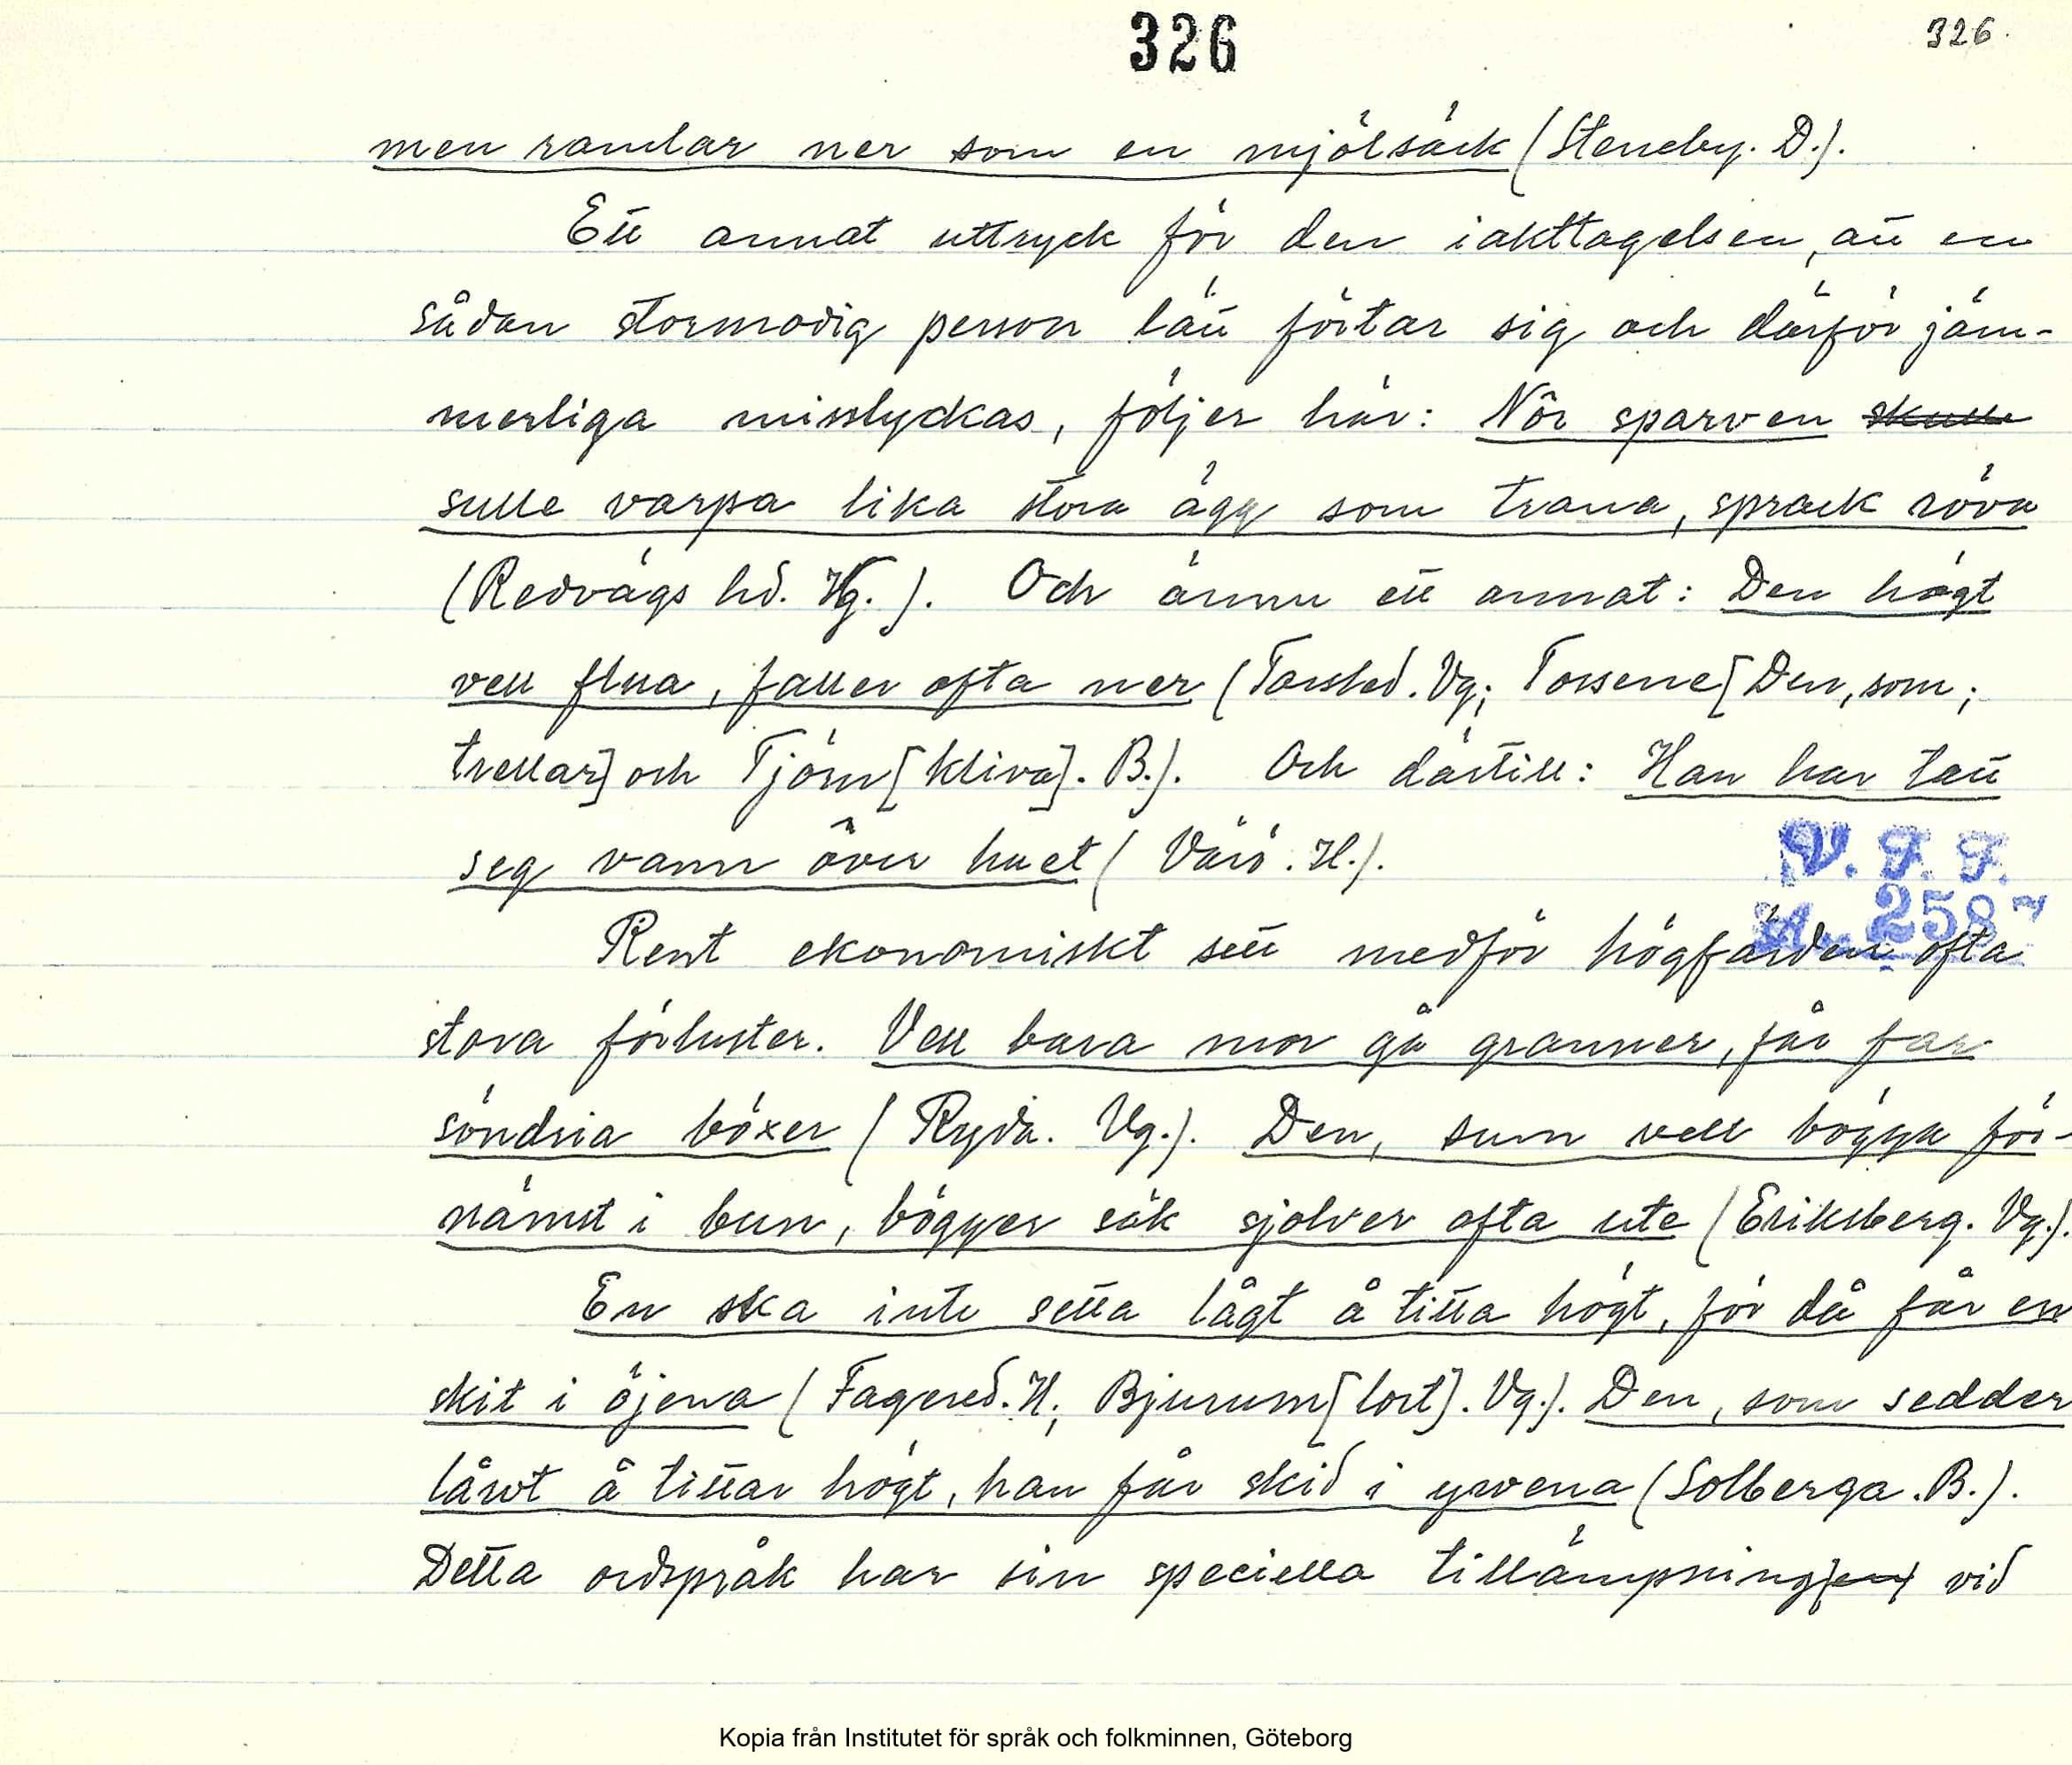 326
326.
men ramlar ner som en mjölsäck (Steneby. D.).
Ett annat uttryck för den iakttagelsen, att en
sådan stormodig person lätt förtar sig och därför jäm-
merliga misslyckas, följer här: Nôr sparven skulle
sulle varpa lika stora ägg som trana, sprack röva
(Redvägs hd. Vg.). Och ännu ett annat: Den högt
vell flua, faller ofta ner (Tarsled. Vg; Tossene [Den, som;
trellar] och Tjörn [kliva]. B.). Och därtill: Han har tatt
seg vann över huet (Värö. H.).
V. F. F.
258
Rent ekonomiskt sett medför högfärden ofta
stora förluster. Vell bara mor gå granner, får far
söndria böxer (Ryda. Vg.). Den, sum vell bögga för-
nämst i bun, bögger säk sjolver ofta ute (Eriksberg. Vg.).
En ska inte setta lågt å titta högt, för då får en
skit i öjena (Fagered. H; Bjurum [lort]. Vg.). Den, som sedder
låwt å tittar högt, han får skid i ywena (Solberga. B.).
Detta ordspråk har sin speciella tillämpning[en] vid
Kopia från Institutet för språk och folkminnen, Göteborg